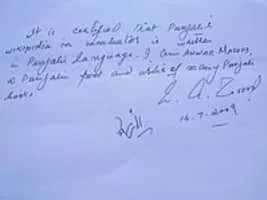 It is certified that Punjabi
wikipedia in incubator is written
in Punjabi language. I am Anwar Masood,
a Punjabi poet and writer of many Punjabi
books.
16.7.2009